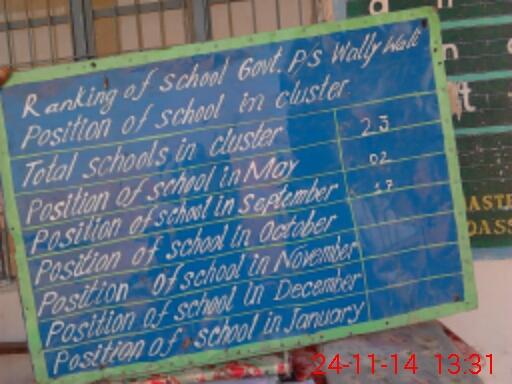 Ranking of school Govt. P/S Wally Wali
Position of school in cluster
Total schools in cluster 23
Position of school in May 02
Position of school in September 17
Position of school in October
Position of school in November
Position of school in December
Position of school in January
24-11-14 13:31